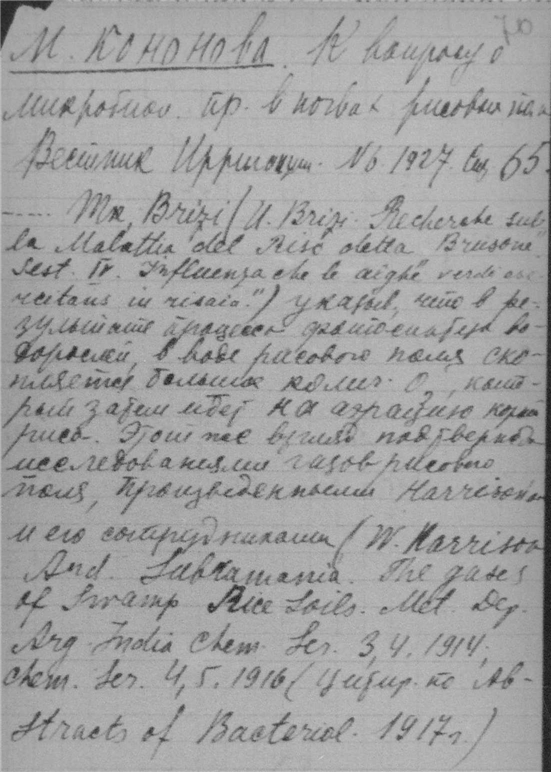 70
М. Кононова. К вопросу о
микробиол. пр. в почвах рисовых
Вестник Ирригации. № 6. 1927. Стр 65.
Так, Brizi (U. Brizi. Recherche sul
la Malattia del Riso detta Brusone
sest. IV. Influenza che le alghe verdi ese-
rcitans in risaia.") указыв, что в ре-
зультате процесса фотосинтеза во-
дорослей, в воде рисового поля ско-
пляется большое колич. O2, кото-
рый затем идет на аэрацию корней
риса. Этот же взгляд подтвержден
исследованиями газов рисового
поля, произведенными Harrison'ом
и его сотрудниками (W. Harrison
And. Subramania. The gases
of Swamp Rice Soils. Met. Dep.
Arg. India Chem. Ser. 3,4. 1914;
Chem. Ser. 4,5. 1916 (цитир. по Ab-
stracts of Bacteriol. 1917г.)